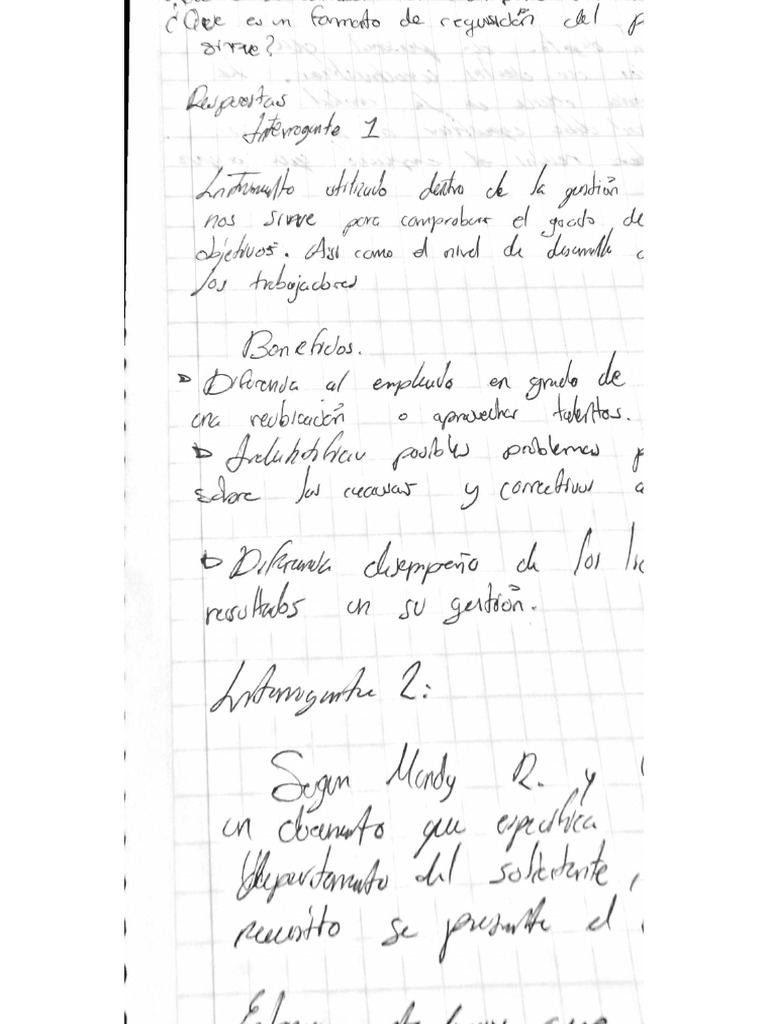 ¿Que es un formato de requisición del p
sirve?
Respuestas
Interrogante 1
Instrumento utilizado dentro de la gestión
nos sirve para comprobar el grado de
objetivos. Asi como el nivel de desarrollo d
los trabajadores
Beneficios.
Diferencia al empleado en grado de
una reubicación o aprovechar talentos.
posibles problemas p
sobre las causas y correctivos a
Diferencia desempeño de los
resultados en su gestión.
Interrogante 2:
Segun Mondy R. y
un documento que especifica
departamento del solicitante,
requisito se presente el